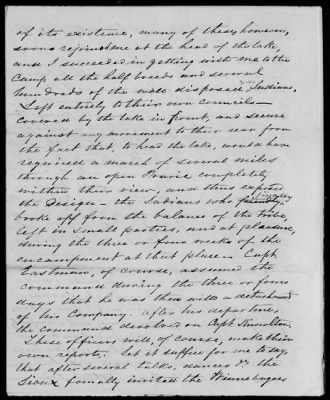 of its existence, many of these, however,
soon rejoined me at the head of the lake,
and I succeeded in getting with me to the
Camp all the half breeds and several
hundreds of the well disposed Indians.
Left entirely to their own councils—
covered by the lake in front, and secure
against any movement to their rear from
the fact that, to head the lake, would have
required a march of several miles
through an open Prairie completely
within their view, and thus exposed
the design— the Indians who
broke off from the balance of the tribe,
left in small parties, and at pleasure,
during the three or four weeks of the
encampment at that place— Capt
Eastman, of course, assumed the
command during the three or four
days that he was there with a detachment
of his Company. After his departure,
the command devolved on Capt
These officers will, of course, make their
own reports. Let it suffice for me to say,
that after several talks, dances &c the
Sioux formally invited the Winnebagoes